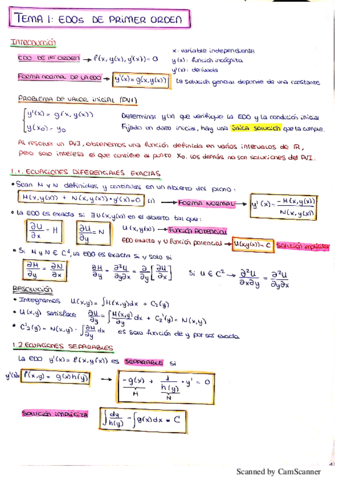 TEMA 1: EDOs DE PRIMER ORDEN
INTRODUCCIÓN
EDO DE 1er ORDEN → f(x, y(x), y'(x)) = 0
x: variable independiente
y(x): función incógnita
y'(x): derivada
FORMA NORMAL DE LA EDO → y'(x) = g(x, y(x))
La solución general depende de una constante
PROBLEMA DE VALOR INICIAL (PVI)
{ y'(x) = g(x, y(x))
y(x0) = y0
Determina y(x) que verifique la EDO y la condición inicial
Fijado un dato inicial, hay una única solución que la cumpla.
Al resolver un PVI, obtenemos una función definida en varios intervalos de ℝ,
pero solo interesa el que contiene al punto x0. Los demás no son soluciones del PVI.
1.1. ECUACIONES DIFERENCIALES EXACTAS
• Sean M y N definidas y continuas en un abierto del plano:
M(x, y(x)) + N(x, y(x))·y'(x) = 0 (1) → FORMA NORMAL → y'(x) = -M(x, y(x)) / N(x, y(x))
• La EDO es exacta si ∃ U(x,y) en el abierto tal que:
∂U/∂x = M ∂U/∂y = N
U(x, y(x)) → FUNCIÓN POTENCIAL
EDO exacta y U función potencial → U(x,y(x)) = C SOLUCIÓN IMPLÍCITA
• Si M y N ∈ C¹, la EDO es exacta si y solo si
∂M/∂y = ∂N/∂x
∂M/∂y = ∂²U/∂y∂x = ∂/∂y [∂U/∂x]
Si U ∈ C² → ∂²U/∂x∂y = ∂²U/∂y∂x
RESOLUCIÓN
• Integramos U(x,y) = ∫M(x,y)dx + C2(y)
• U(x,y) satisface ∂U/∂y = ∫∂M(x,y)/∂y dx + C2'(y) = N(x,y)
• C2'(y) = N(x,y) - ∫∂M/∂y dx es solo función de y por ser exacta.
1.2 ECUACIONES SEPARABLES
La EDO y'(x) = f(x, y(x)) es SEPARABLE si
y'(x) = f(x,y) = g(x)h(y) → -g(x) + 1/h(y) · y' = 0
M N
SOLUCIÓN IMPLÍCITA ∫dy/h(y) - ∫g(x)dx = C
Scanned by CamScanner